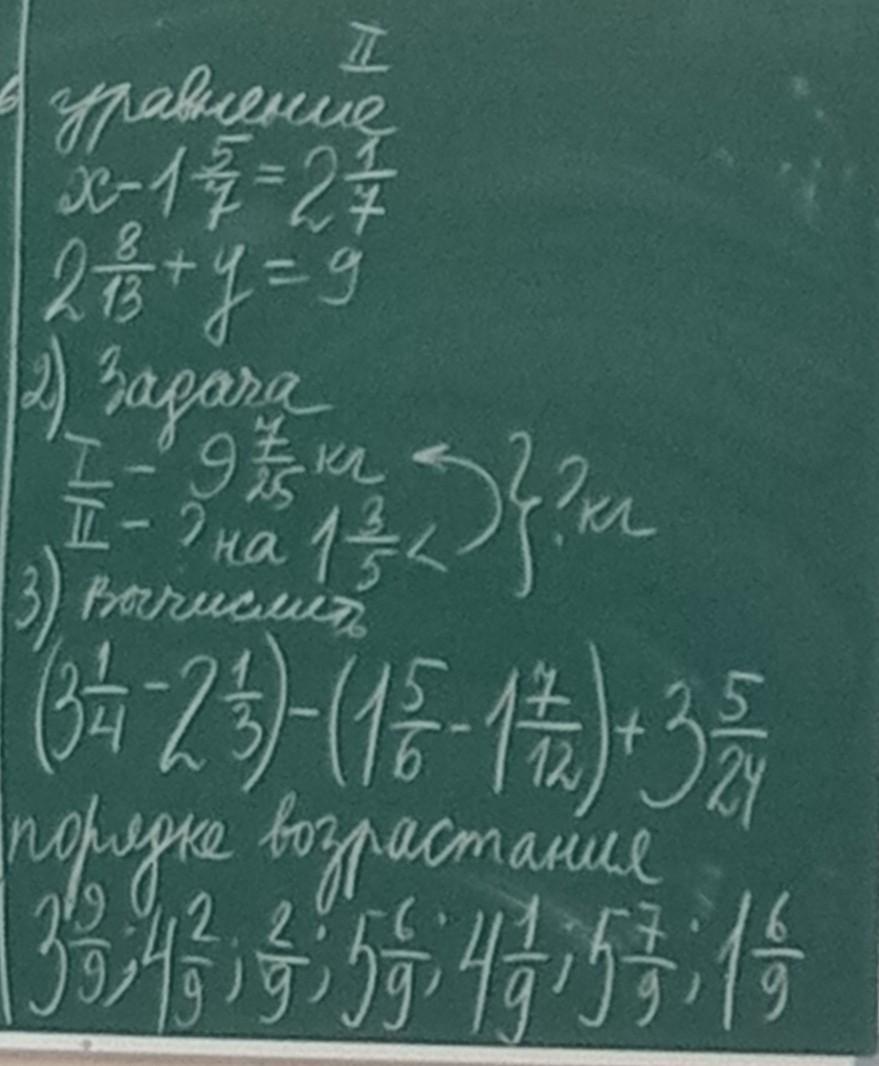 II
уравнение
x - 1 5/7 = 2 1/7
2 8/13 + y = 9
2) Задача
I - 9 7/25 кг
II - ? на 1 3/5 < } ? кг
3) Вычислить
(3 1/4 - 2 1/3) - (1 5/6 - 1 7/12) + 3 5/24
порядке возрастания
3 9/9; 4 2/9; 2/9; 5 6/9; 4 1/9; 5 7/9; 1 6/9